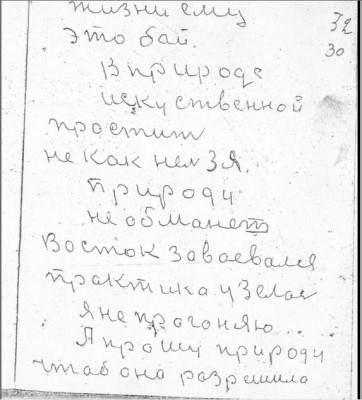 жизни ему
32
30
это бай.
в природе
искуственной
простит
не как нелзя.
природи
не обманет
Восток завоевался
практика узелав
я не прогоняю...
Я прошу природи
чтаб она разрешила